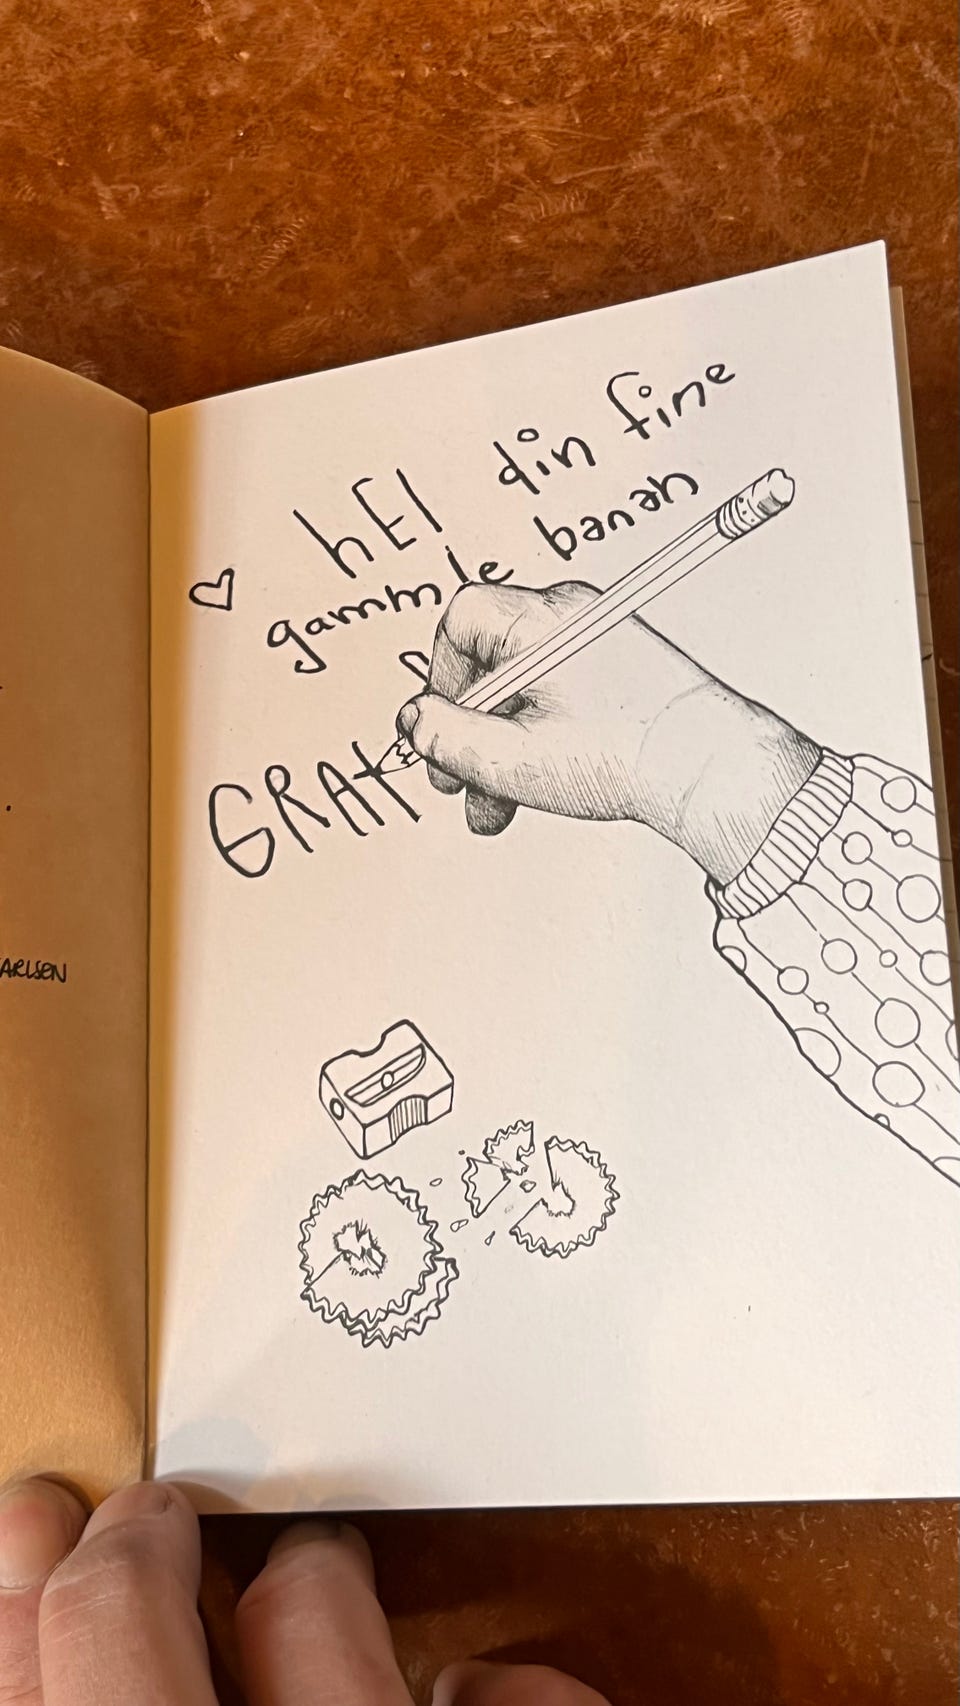 hEI din fine
gammle banan
GRAt
ARLSEN